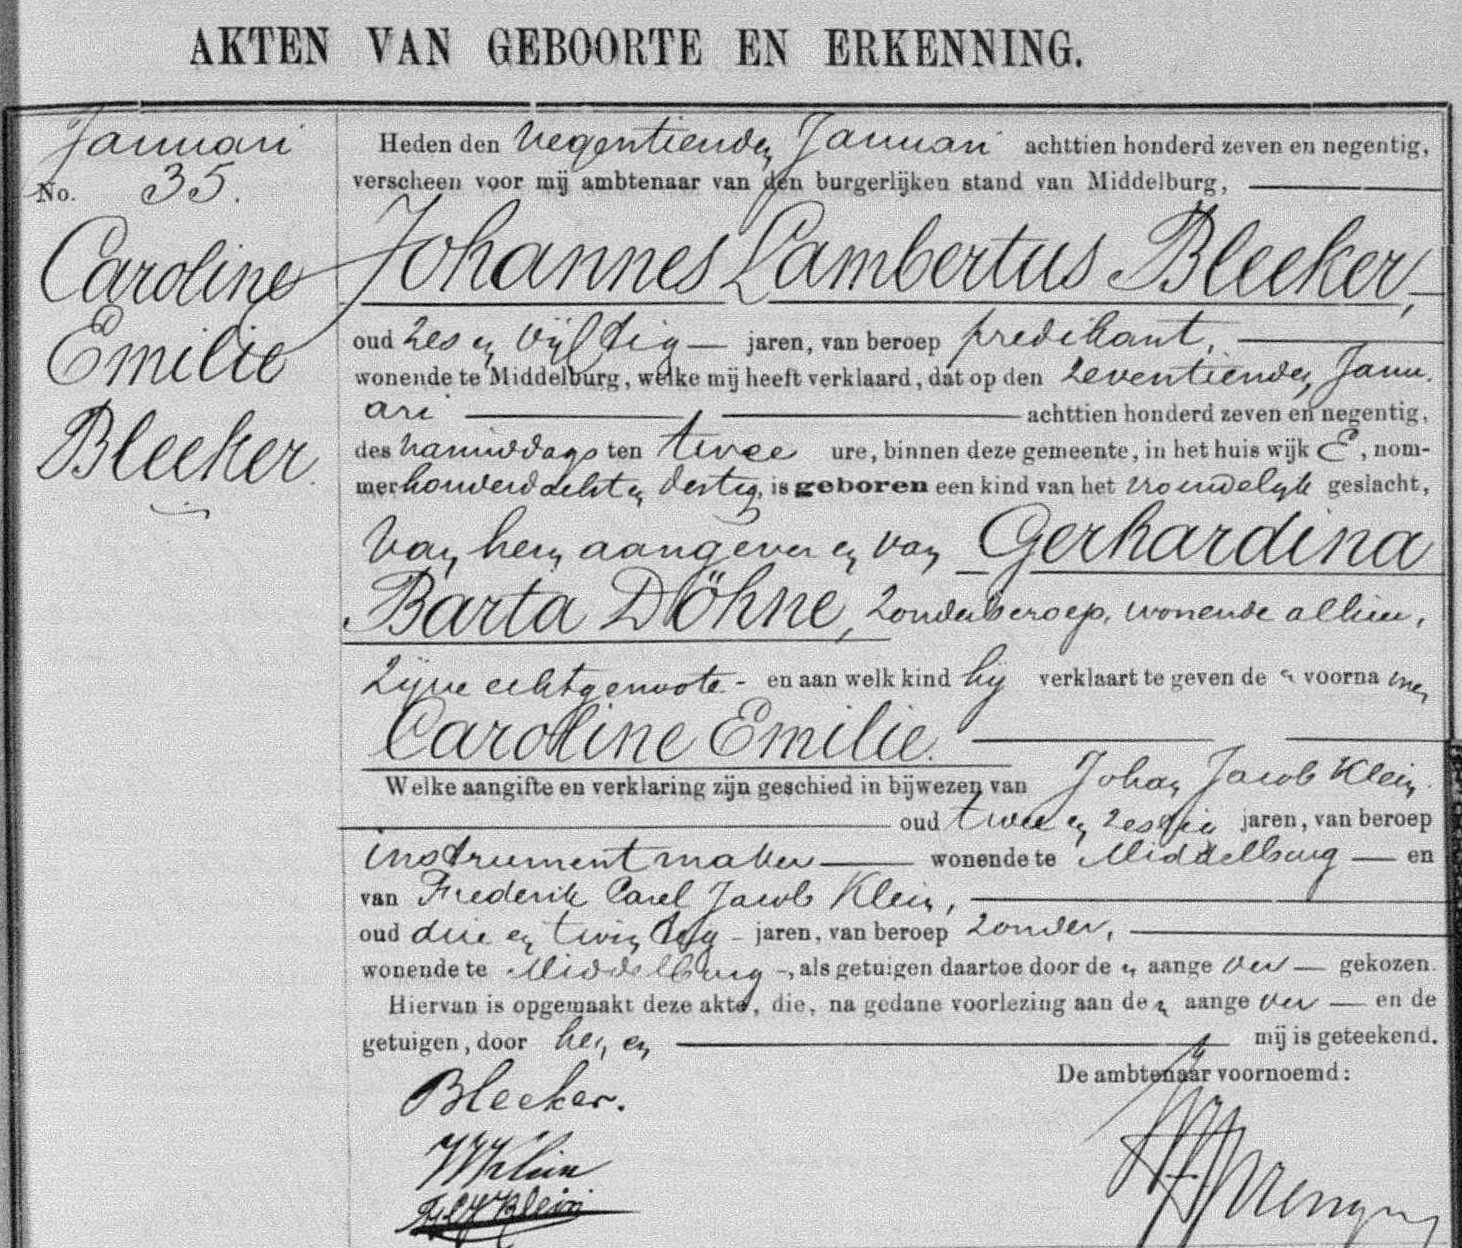 AKTEN VAN GEBOORTE EN ERKENNING.
Januari
No. 35.
Caroline
Emilie
Bleeker.
Heden den negentienden Januari achttien honderd zeven en negentig,
verscheen voor mij ambtenaar van den burgerlijken stand van Middelburg,
Johannes Lambertus Bleeker,
oud zes en vijftig jaren, van beroep predikant,
wonende te Middelburg, welke mij heeft verklaard, dat op den zeventienden Janu-
ari achttien honderd zeven en negentig,
des namiddags ten twee ure, binnen deze gemeente, in het huis wijk E, nom-
mer honderd acht en dertig, is geboren een kind van het vrouwelijk geslacht,
van hem aangever en van Gerhardina
Barta Döhne, zonder beroep, wonende alhier,
zijne echtgenoote - en aan welk kind hij verklaart te geven de n voorna men
Caroline Emilie.
Welke aangifte en verklaring zijn geschied in bijwezen van Johan Jacob Klein
oud twee en zestig jaren, van beroep
instrumentmaker wonende te Middelburg en
van Frederik Carel Jacob Klein,
oud drie en twintig - jaren, van beroep zonder,
wonende te Middelburg -, als getuigen daartoe door de n aange ver gekozen.
Hiervan is opgemaakt deze akte, die, na gedane voorlezing aan de n aange ver en de
getuigen, door hen en mij is geteekend.
De ambtenaar voornoemd:
Bleeker.
JJKlein
FCJKlein